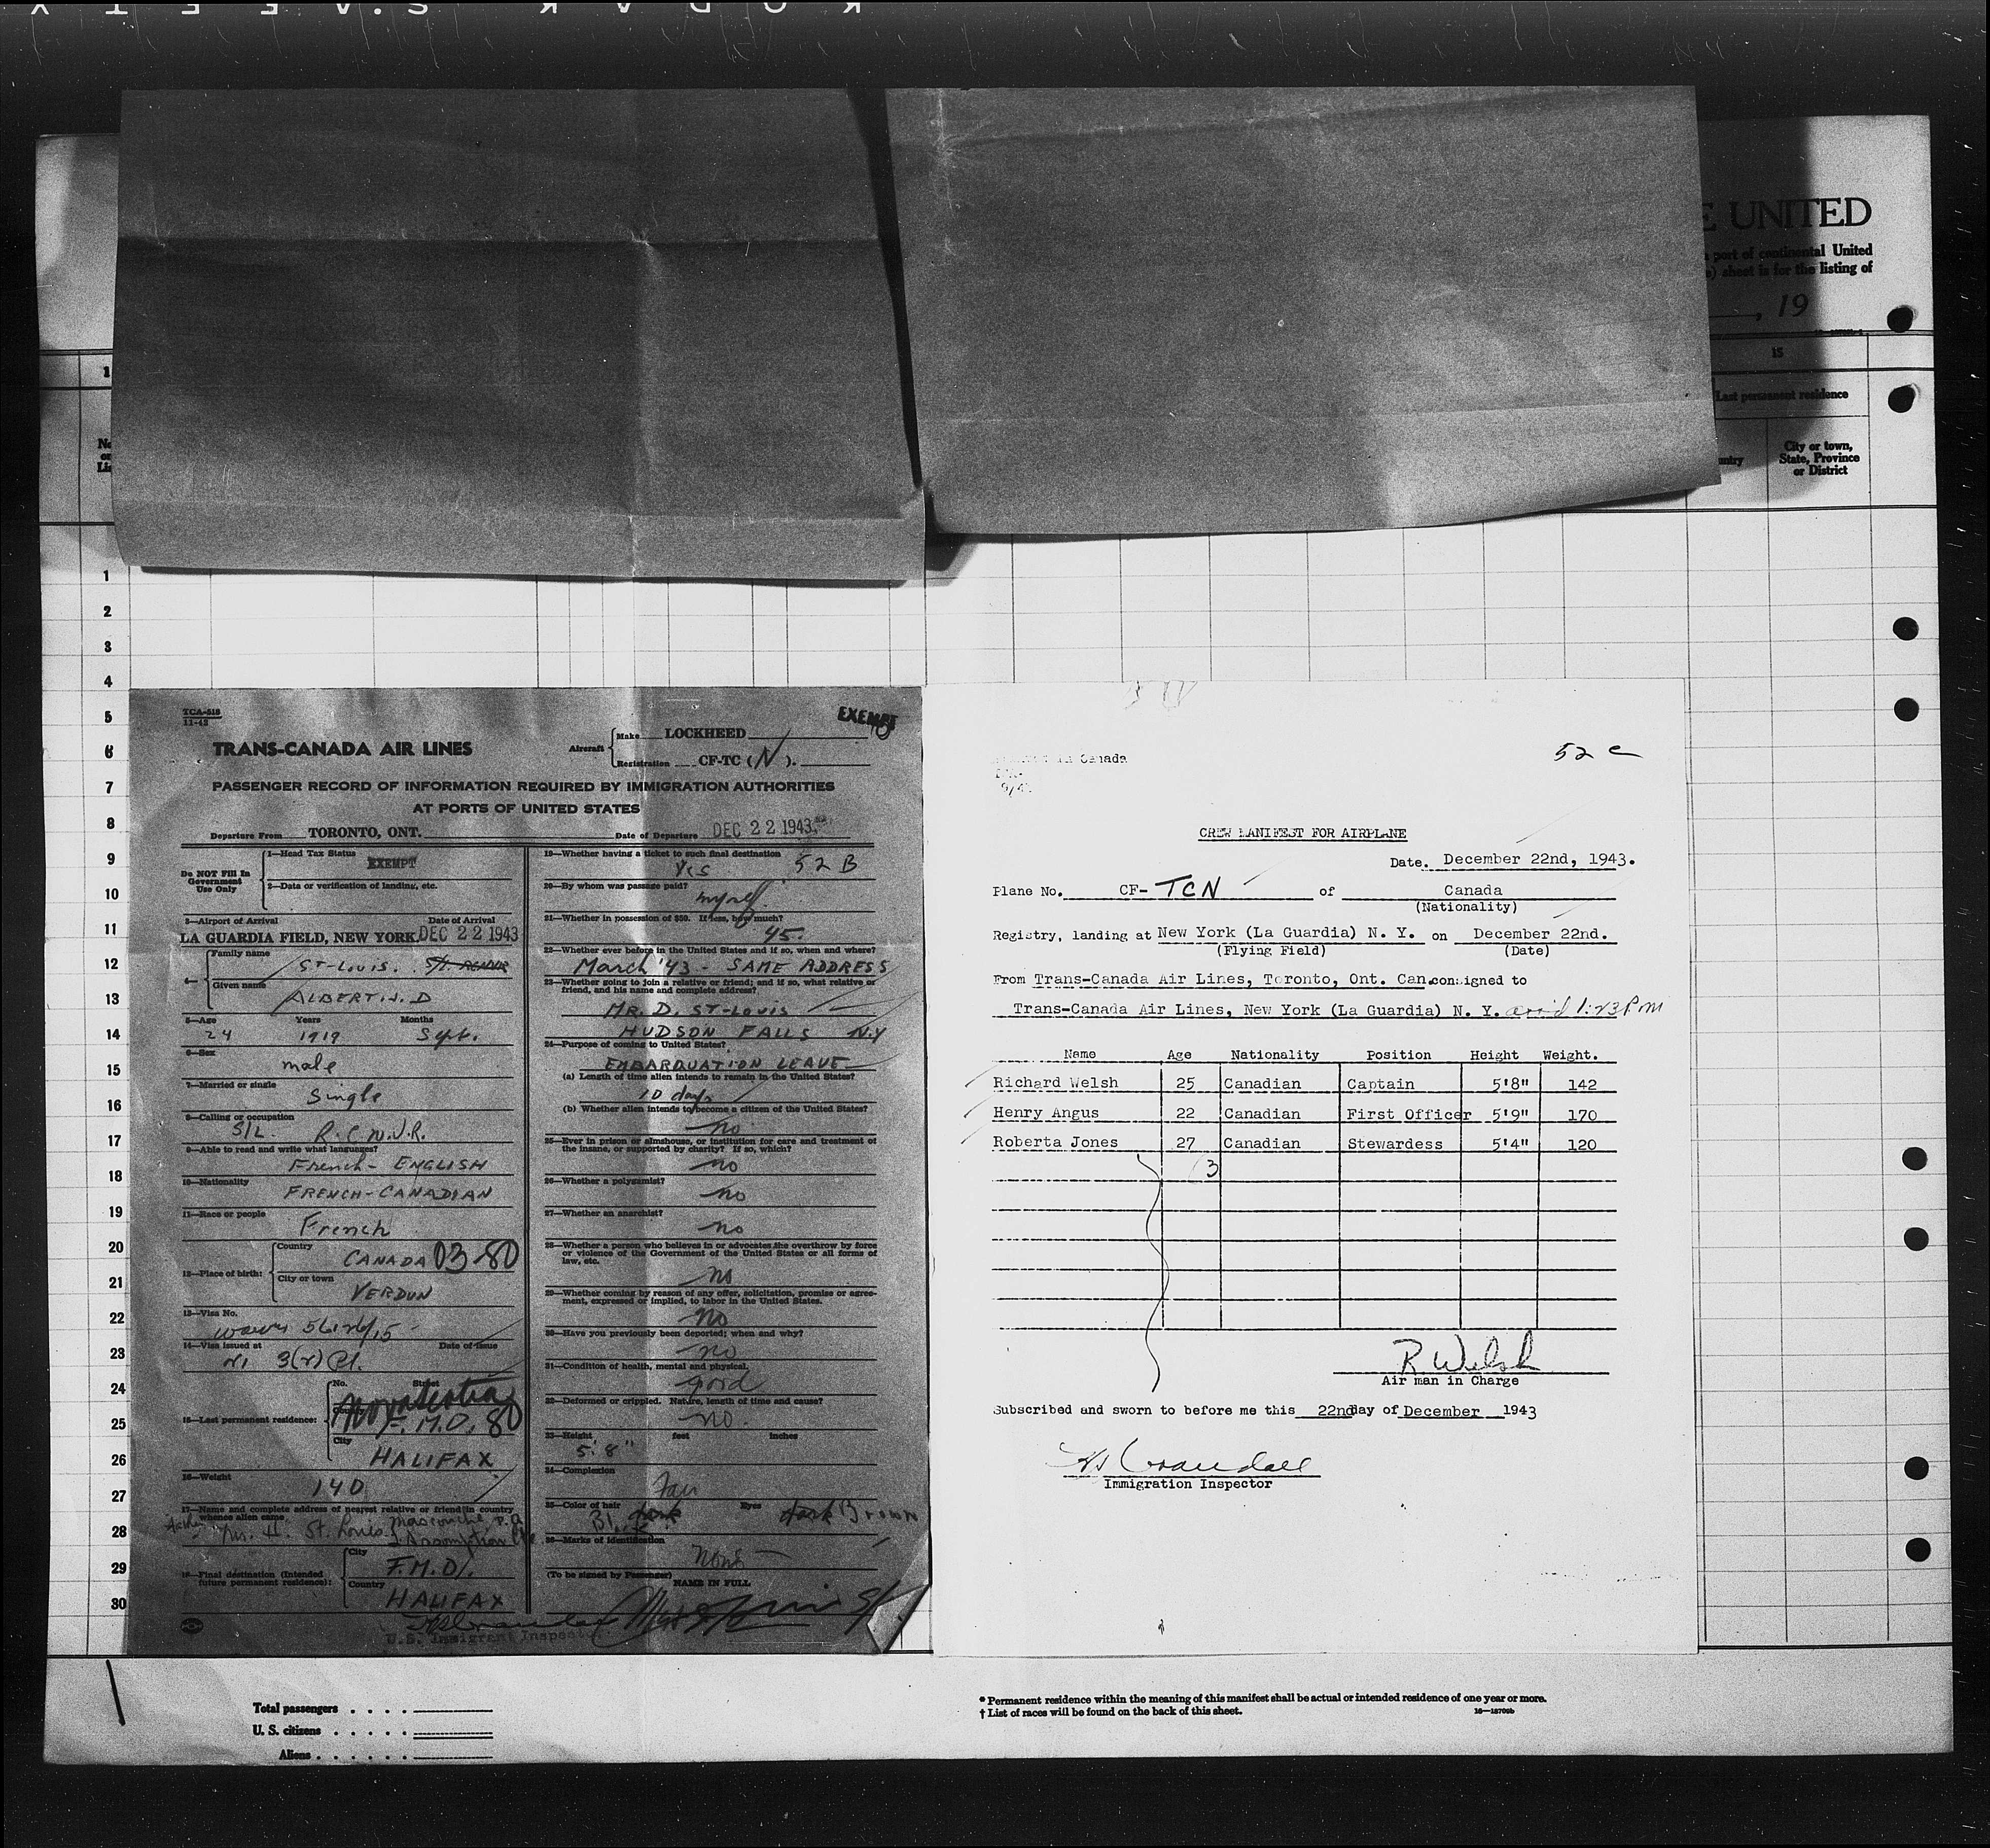 E UNITED
port of continental United
) sheet is for the listing of
, 19
15
Last permanent residence
City or town,
State, Province
or District
1
1
2
3
4
5
6
7
8
9
10
11
12
13
14
15
16
17
18
19
20
21
22
23
24
25
26
27
28
29
30
TCA-518
11-42
EXEMPT
TRANS-CANADA AIR LINES
Aircraft
Make LOCKHEED
Registration CF-TC (N).
PASSENGER RECORD OF INFORMATION REQUIRED BY IMMIGRATION AUTHORITIES
AT PORTS OF UNITED STATES
Departure From TORONTO, ONT. Date of Departure DEC 22 1943
Do NOT Fill In
Government
Use Only
1—Head Tax Status
EXEMPT
2—Data or verification of landing, etc.
3—Airport of Arrival Date of Arrival
LA GUARDIA FIELD, NEW YORK. DEC 22 1943
4—
Family name
ST-LOUIS.
Given name
ALBERT. J. D
5—Age Years Months
24 1919 Sept.
6—Sex
male
7—Married or single
Single
8—Calling or occupation
S/L. R.C.N.V.R.
9—Able to read and write what languages?
French - ENGLISH
10—Nationality
FRENCH-CANADIAN
11—Race or people
French
12—Place of birth:
Country
CANADA 03-80
City or town
VERDUN
13—Visa No.
14—Visa issued at Date of Issue
15—Last permanent residence:
No. Street
Nova Scotia
F.M.O. 80
City
HALIFAX
16—Weight
140
17—Name and complete address of nearest relative or friend in country
whence alien came
Mr. H. St. Louis. Mascouche, P.Q.
L'Assomption
18—Final destination (Intended
future permanent residence):
City
F.M.O.
Country
HALIFAX
U.S. Immigrant Inspector
19—Whether having a ticket to such final destination
Yes 52 B
20—By whom was passage paid?
myself
21—Whether in possession of $50. If less, how much?
45.
22—Whether ever before in the United States and if so, when and where?
March '43 - SAME ADDRESS
23—Whether going to join a relative or friend; and if so, what relative or
friend, and his name and complete address?
MR. D. ST-LOUIS
HUDSON FALLS N.Y
24—Purpose of coming to United States?
EMBARQUATION LEAVE
(a) Length of time alien intends to remain in the United States?
10 days
(b) Whether alien intends to become a citizen of the United States?
no
25—Ever in prison or almshouse, or institution for care and treatment of
the insane, or supported by charity? If so, which?
no
26—Whether a polygamist?
no
27—Whether an anarchist?
no
28—Whether a person who believes in or advocates the overthrow by force
or violence of the Government of the United States or all forms of
law, etc.
no
29—Whether coming by reason of any offer, solicitation, promise or agree-
ment, expressed or implied, to labor in the United States.
No
30—Have you previously been deported; when and why?
no
31—Condition of health, mental and physical.
good
32—Deformed or crippled. Nature, length of time and cause?
no.
33—Height feet inches
5'8"
34—Complexion
Fair
35—Color of hair Eyes
Bl. dark dark Brown
36—Marks of identification
None
(To be signed by Passenger)
NAME IN FULL
in Canada
52 c
CREW MANIFEST FOR AIRPLANE
Date. December 22nd, 1943.
Plane No. CF-TCN of Canada
(Nationality)
Registry, landing at New York (La Guardia) N. Y. on December 22nd.
(Flying Field) (Date)
From Trans-Canada Air Lines, Toronto, Ont. Can. consigned to
Trans-Canada Air Lines, New York (La Guardia) N. Y. arrd 1:23 Pm
Name Age Nationality Position Height Weight.
Richard Welsh 25 Canadian Captain 5'8" 142
Henry Angus 22 Canadian First Officer 5'9" 170
Roberta Jones 27 Canadian Stewardess 5'4" 120
(3
R Welsh
Air man in Charge
Subscribed and sworn to before me this 22nd day of December 1943
Crandall
Immigration Inspector
Total passengers
U. S. citizens
Aliens
* Permanent residence within the meaning of this manifest shall be actual or intended residence of one year or more.
† List of races will be found on the back of this sheet.